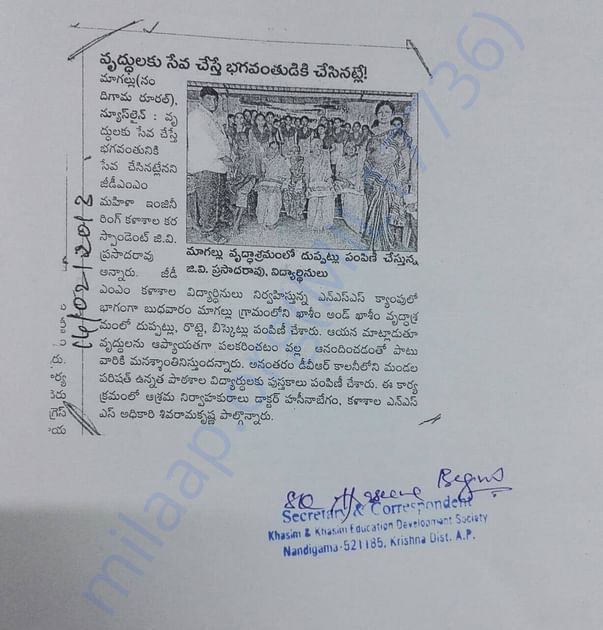 వృద్ధులకు సేవ చేస్తే భగవంతుడికి చేసినట్లే!
మాగల్లు(నం
దిగామ రూరల్),
న్యూస్‌లైన్ : వృ
ద్ధులకు సేవ చేస్తే
భగవంతునికి
సేవ చేసినట్లేనని
జీడీఎంఎం
మహిళా ఇంజినీ
రింగ్ కళాశాల కర
స్పాండెంట్ జి.వి.
ప్రసాదరావు
అన్నారు. జీడీ
మాగల్లు వృద్ధాశ్రమంలో దుప్పట్లు పంపిణీ చేస్తున్న
జి.వి. ప్రసాదరావు, విద్యార్థినులు
ఎంఎం కళాశాల విద్యార్థినులు నిర్వహిస్తున్న ఎన్ఎస్ఎస్ క్యాంపులో
భాగంగా బుధవారం మాగల్లు గ్రామంలోని ఖాశీం అండ్ ఖాశీం వృద్ధాశ్ర
మంలో దుప్పట్లు, రొట్టె, బిస్కెట్లు పంపిణీ చేశారు. ఆయన మాట్లాడుతూ
వృద్ధులను ఆప్యాయతగా పలకరించటం వల్ల ఆనందించడంతో పాటు
వారికి మనశ్శాంతినిస్తుందన్నారు. అనంతరం డీవీఆర్ కాలనీలోని మండల
పరిషత్ ఉన్నత పాఠశాల విద్యార్థులకు పుస్తకాలు పంపిణీ చేశారు. ఈ కార్య
క్రమంలో ఆశ్రమ నిర్వాహకురాలు డాక్టర్ హసీనాబేగం, కళాశాల ఎన్ఎస్
ఎస్ అధికారి శివరామకృష్ణ పాల్గొన్నారు.
14/02/2013
Haseena Begum
Secretary & Correspondent
Khasim & Khasim Education Development Society
Nandigama-521185, Krishna Dist. A.P.